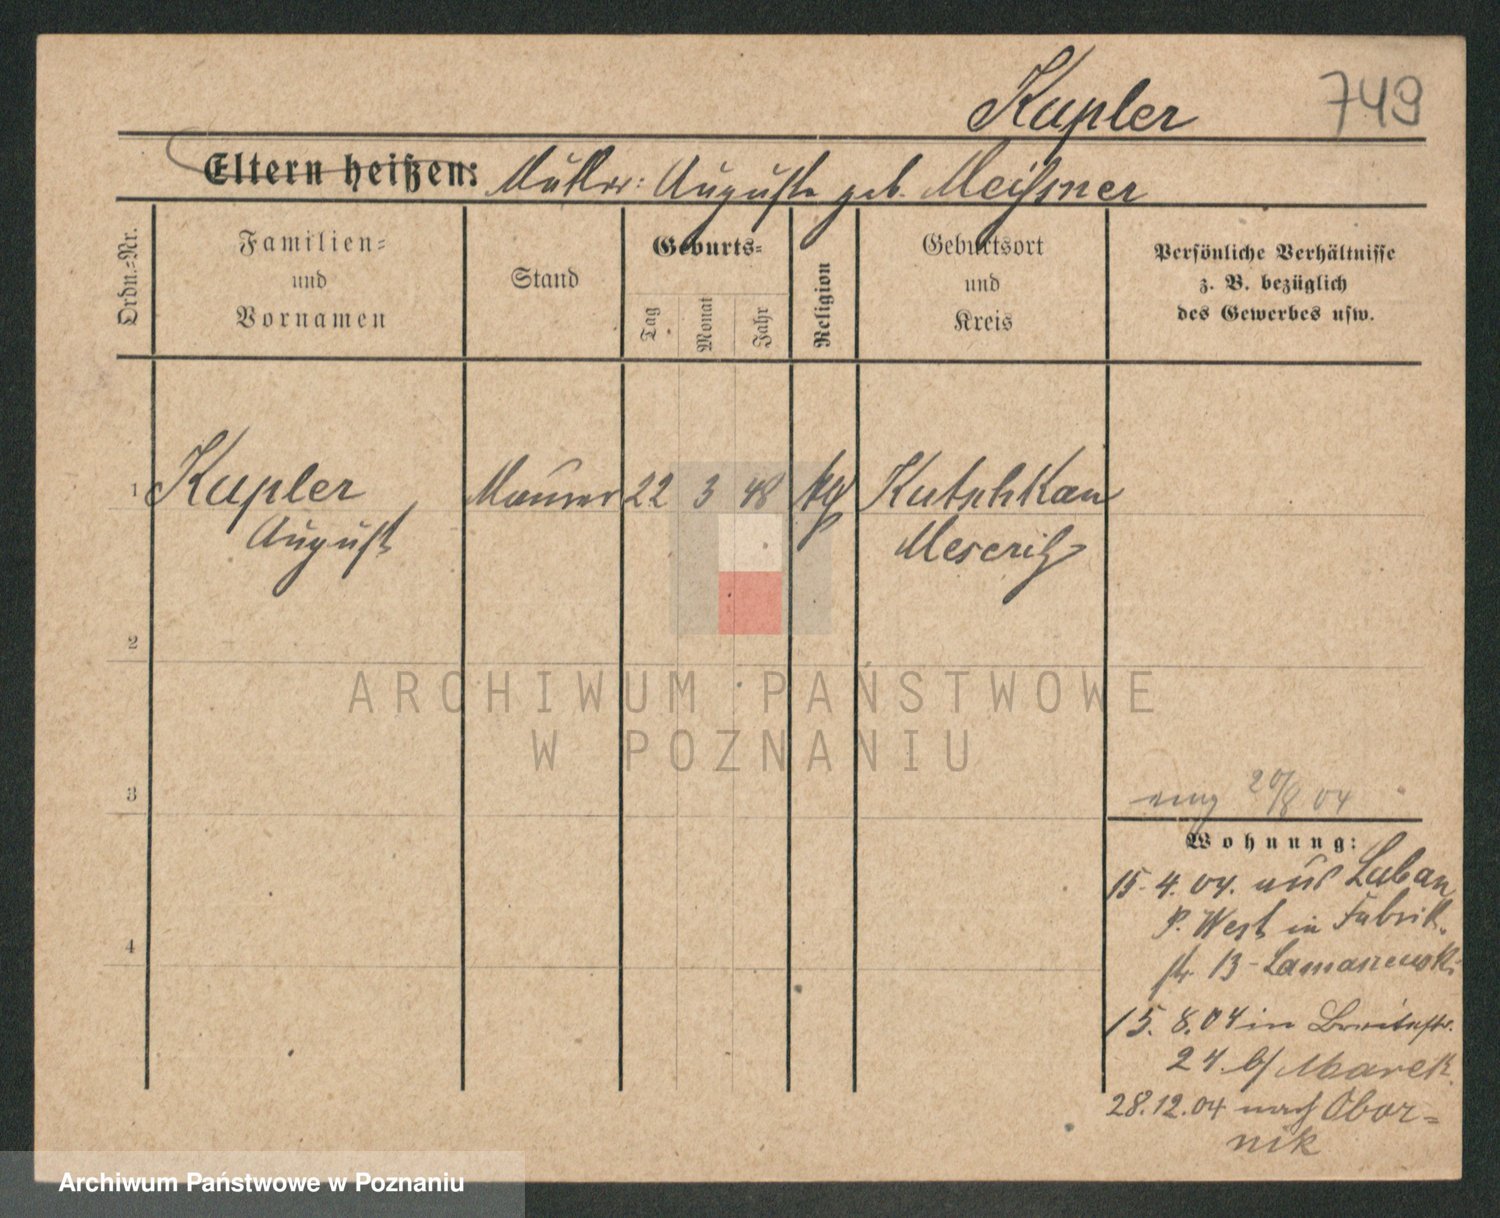 Kapler
749
Eltern heißen: Mutter: Auguste geb. Meißner
Ordn.-Nr.
Familien-
und
Vornamen
Stand
Geburts-
Tag
Monat
Jahr
Religion
Geburtsort
und
Kreis
Persönliche Verhältnisse
z. B. bezüglich
des Gewerbes usw.
1 Kapler Maurer 22 3 48 Kutschkau
August Meseritz
2
ARCHIWUM PAŃSTWOWE
W POZNANIU
3
20/8 04
Wohnung:
15.4.04. aus Luban
P. West in Fabrik-
str 13 - Lamanewski
15. 8.04 in Breitestr.
24 b/ Marek
4
28.12.04 nach Obor=
nik
Archiwum Państwowe w Poznaniu